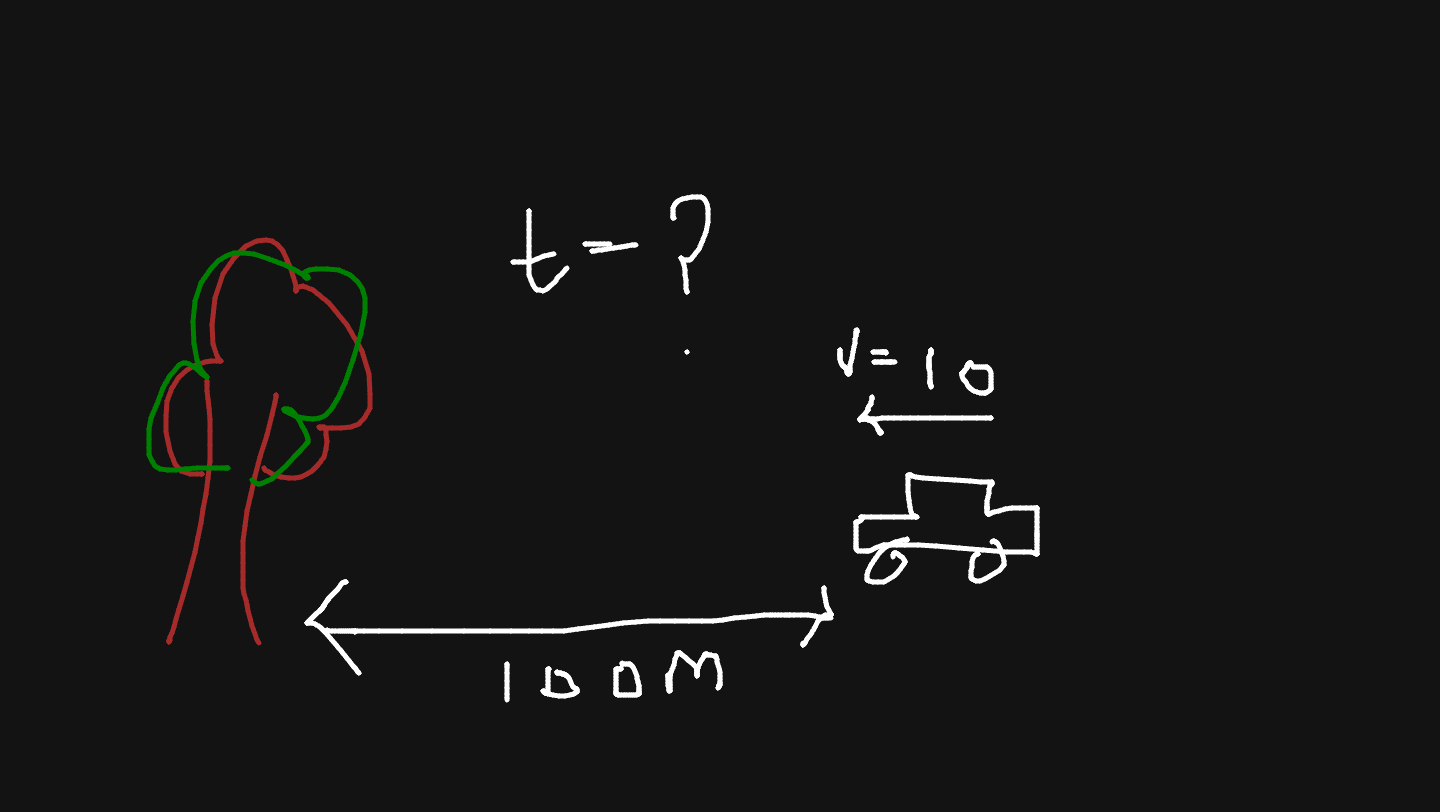 t=?
V=10
100M